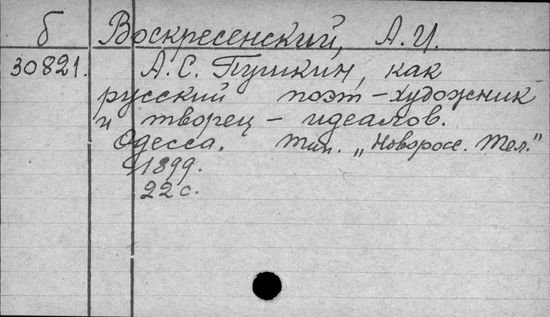 б Воскресенский, А.И.
30821. А.С. Пушкин, как
русский поэт-художник
и творец - идеалов.
Одесса. Тип. „Новоросс. Тел."
1899.
22 с.